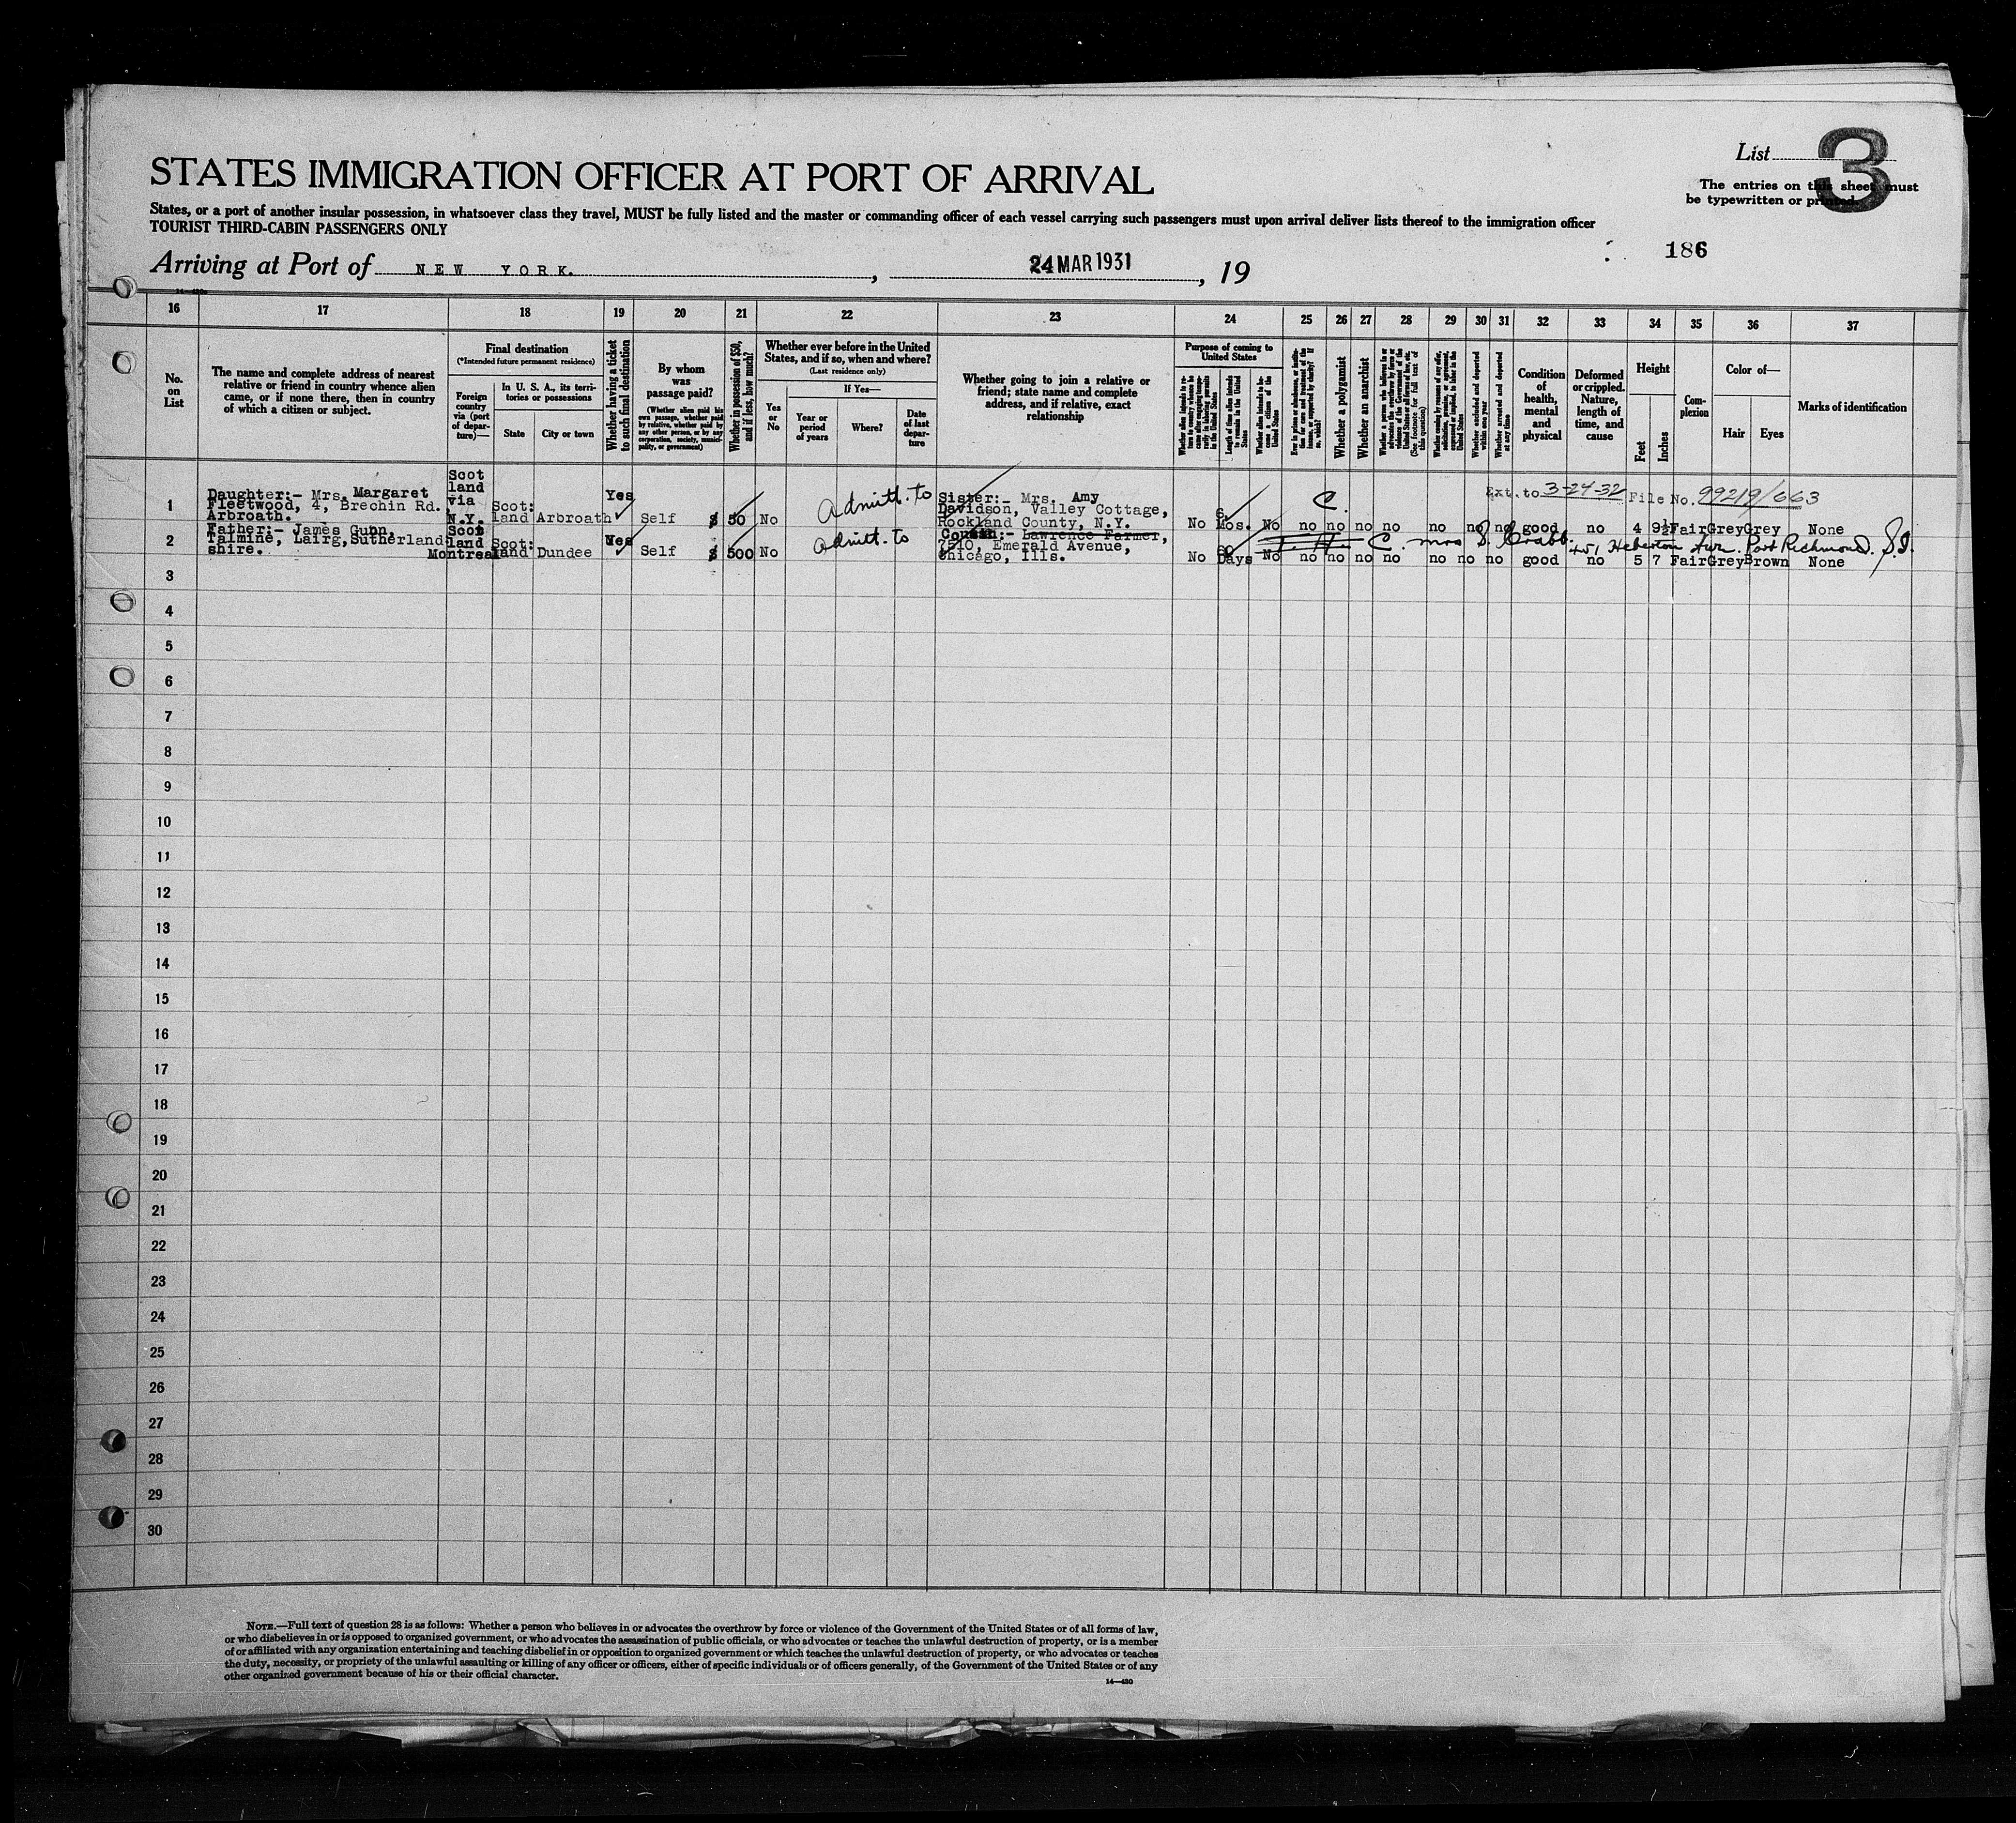 List 3
The entries on this sheet must
be typewritten or printed.
STATES IMMIGRATION OFFICER AT PORT OF ARRIVAL
States, or a port of another insular possession, in whatsoever class they travel, MUST be fully listed and the master or commanding officer of each vessel carrying such passengers must upon arrival deliver lists thereof to the immigration officer
TOURIST THIRD-CABIN PASSENGERS ONLY
186
Arriving at Port of NEW YORK. , 24 MAR 1931 , 19
16 17 18 19 20 21 22 23 24 25 26 27 28 29 30 31 32 33 34 35 36 37
No.
on
List
The name and complete address of nearest
relative or friend in country whence alien
came, or if none there, then in country
of which a citizen or subject.
Final destination
(*Intended future permanent residence)
Foreign
country
via (port
of depar-
ture)—
In U. S. A., its terri-
tories or possessions
State
City or town
Whether having a ticket
to such final destination
By whom
was
passage paid?
(Whether alien paid his
own passage, whether paid
by relative, whether paid by
any other person, or by any
corporation, society, munic-
ipality, or government)
Whether in possession of $50,
and if less, how much?
Whether ever before in the United
States, and if so, when and where?
(Last residence only)
Yes
or
No
If Yes—
Year or
period
of years
Where?
Date
of last
depar-
ture
Whether going to join a relative or
friend; state name and complete
address, and if relative, exact
relationship
Purpose of coming to
United States
Length of time alien intends
to remain in the United
States
Whether alien intends to be-
come a citizen of the
United States
Whether a polygamist
Whether an anarchist
(See footnote for full text of
this question)
Whether excluded and deported
within one year
Whether arrested and deported
at any time
Condition
of
health,
mental
and
physical
Deformed
or crippled.
Nature,
length of
time, and
cause
Height
Feet
Inches
Com-
plexion
Color of—
Hair
Eyes
Marks of identification
1
Daughter:- Mrs. Margaret
Fleetwood, 4, Brechin Rd.,
Arbroath.
Scot
land
via
N.Y.
Scot:
land Arbroath
Yes
Self $ 50 No
Admitt. to
Sister:- Mrs. Amy
Davidson, Valley Cottage,
Rockland County, N.Y.
No 6 Mos. No
C.
Ext. to 3-24-32 File No. 99219/663
no no no no no no no good no 4 9½ Fair Grey Grey None
2
Father:- James Gunn,
Talmine, Lairg, Sutherland
shire.
Scot
land
Montreal
Scot:
land Dundee
Yes
Self $ 500 No
Admitt. to
Cousin:- Lawrence Farmer,
7510, Emerald Avenue,
Chicago, Ills.
No 60 Days No
C. Mrs S. Crabb.
451 Heberton Ave. Port Richmond. S.I.
no no no no no no no good no 5 7 Fair Grey Brown None
3
4
5
6
7
8
9
10
11
12
13
14
15
16
17
18
19
20
21
22
23
24
25
26
27
28
29
30
NOTE.—Full text of question 28 is as follows: Whether a person who believes in or advocates the overthrow by force or violence of the Government of the United States or of all forms of law,
or who disbelieves in or is opposed to organized government, or who advocates the assassination of public officials, or who advocates or teaches the unlawful destruction of property, or is a member
of or affiliated with any organization entertaining and teaching disbelief in or opposition to organized government or which teaches the unlawful destruction of property, or who advocates or teaches
the duty, necessity, or propriety of the unlawful assaulting or killing of any officer or officers, either of specific individuals or of officers generally, of the Government of the United States or of any
other organized government because of his or their official character.
14—430